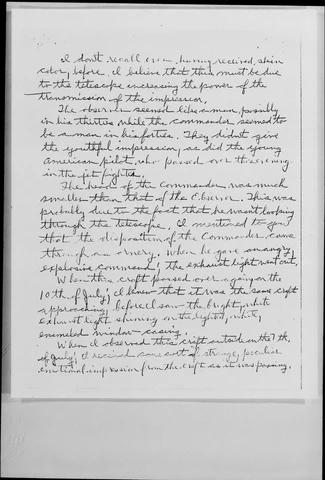 I don't recall ever having received skin
color, before. I believe that this must be due
to the telescope increasing the power of the
transmission of the impression.
The observer seemed like a man, possibly
in his thirties, while the commander seemed to
be a man in his forties. They didn't give
the youthful impression, as did the young
American pilot, who passed over this evening
in the jet fighter.
The head of the Commander was much
smaller than that of the Observer. This was
probably due to the fact that he wasn't looking
through the telescope. I mentioned to you
that the disposition of the Commander, came
through as ornery. When he gave an angry,
explosive command, the exhaust light went out.
When this craft passed over, again on the
10th of July, I knew that it was the same craft
approaching, before I saw the bright, white
exhaust light shining on the lighted, white,
enameled window-casing.
When I observed this craft outside on the 7th.
of July, I received some sort of strange, peculiar
emotional impression from the craft as it was passing.